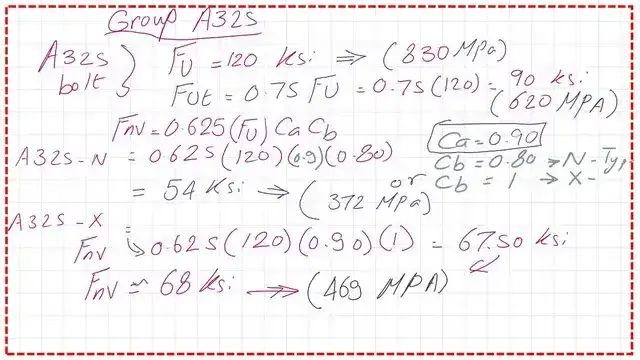 Group A325
A325 bolt } Fu = 120 ksi ⇒ (830 MPa)
Fut = 0.75 Fu = 0.75 (120) = 90 ksi
(620 MPA)
Fnv = 0.625 (Fu) Ca Cb
Ca = 0.90
A325-N = 0.625 (120) (0.9) (0.80)
Cb = 0.80 → N-Typ
or Cb = 1 → X-
= 54 Ksi → (372 MPa)
A325-X =
Fnv ↳ 0.625 (120) (0.90) (1) = 67.50 ksi
Fnv ≈ 68 Ksi → (469 MPA)